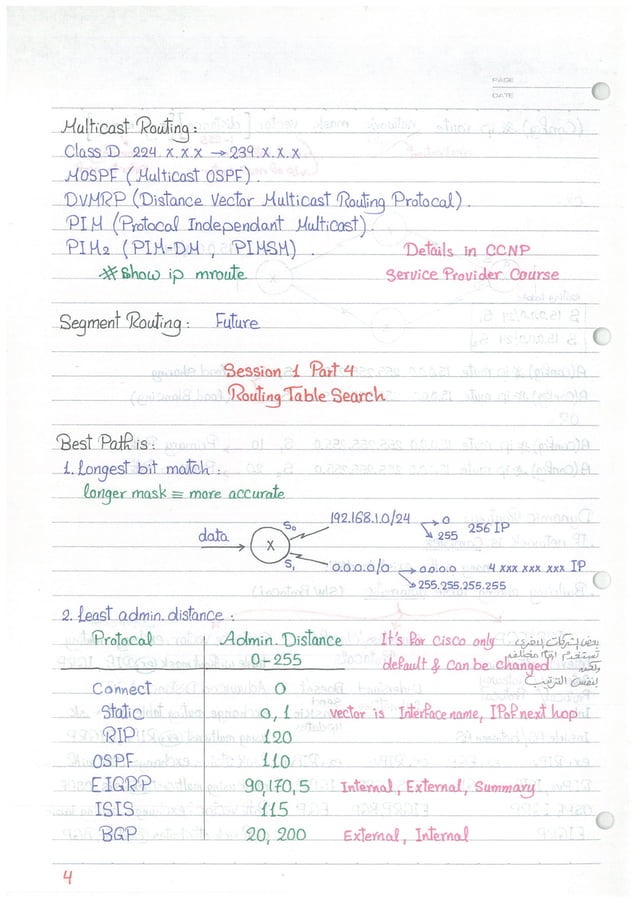 PAGE
DATE
Multicast Routing:
Class D 224.x.x.x → 239.x.x.x
MOSPF (Multicast OSPF).
DVMRP (Distance Vector Multicast Routing Protocal).
PIM (Protocal Independant Multicast).
PIM2 (PIM-DM, PIMSM). Details in CCNP
# Show ip mroute Service Provider Course
Segment Routing: Future
Session 1 Part 4
Routing Table Search
Best Path is:
1. Longest bit match:
longer mask ≡ more accurate
data X S0 192.168.1.0/24 → 0 256 IP
255
S1 0.0.0.0/0 → 0.0.0.0 4 xxx xxx xxx IP
255.255.255.255
2. Least admin. distance:
Protocal Admin. Distance It's for Cisco only
0-255 default & Can be changed
بعض الشركات الاخرى
تستخدم ارقام مختلفه
ولكنه
لنفس الترتيب
Connect 0
Static 0, 1 vector is Interface name, IP of next hop
RIP 120
OSPF 110
EIGRP 90, 170, 5 Internal, External, Summary
ISIS 115
BGP 20, 200 External, Internal
4